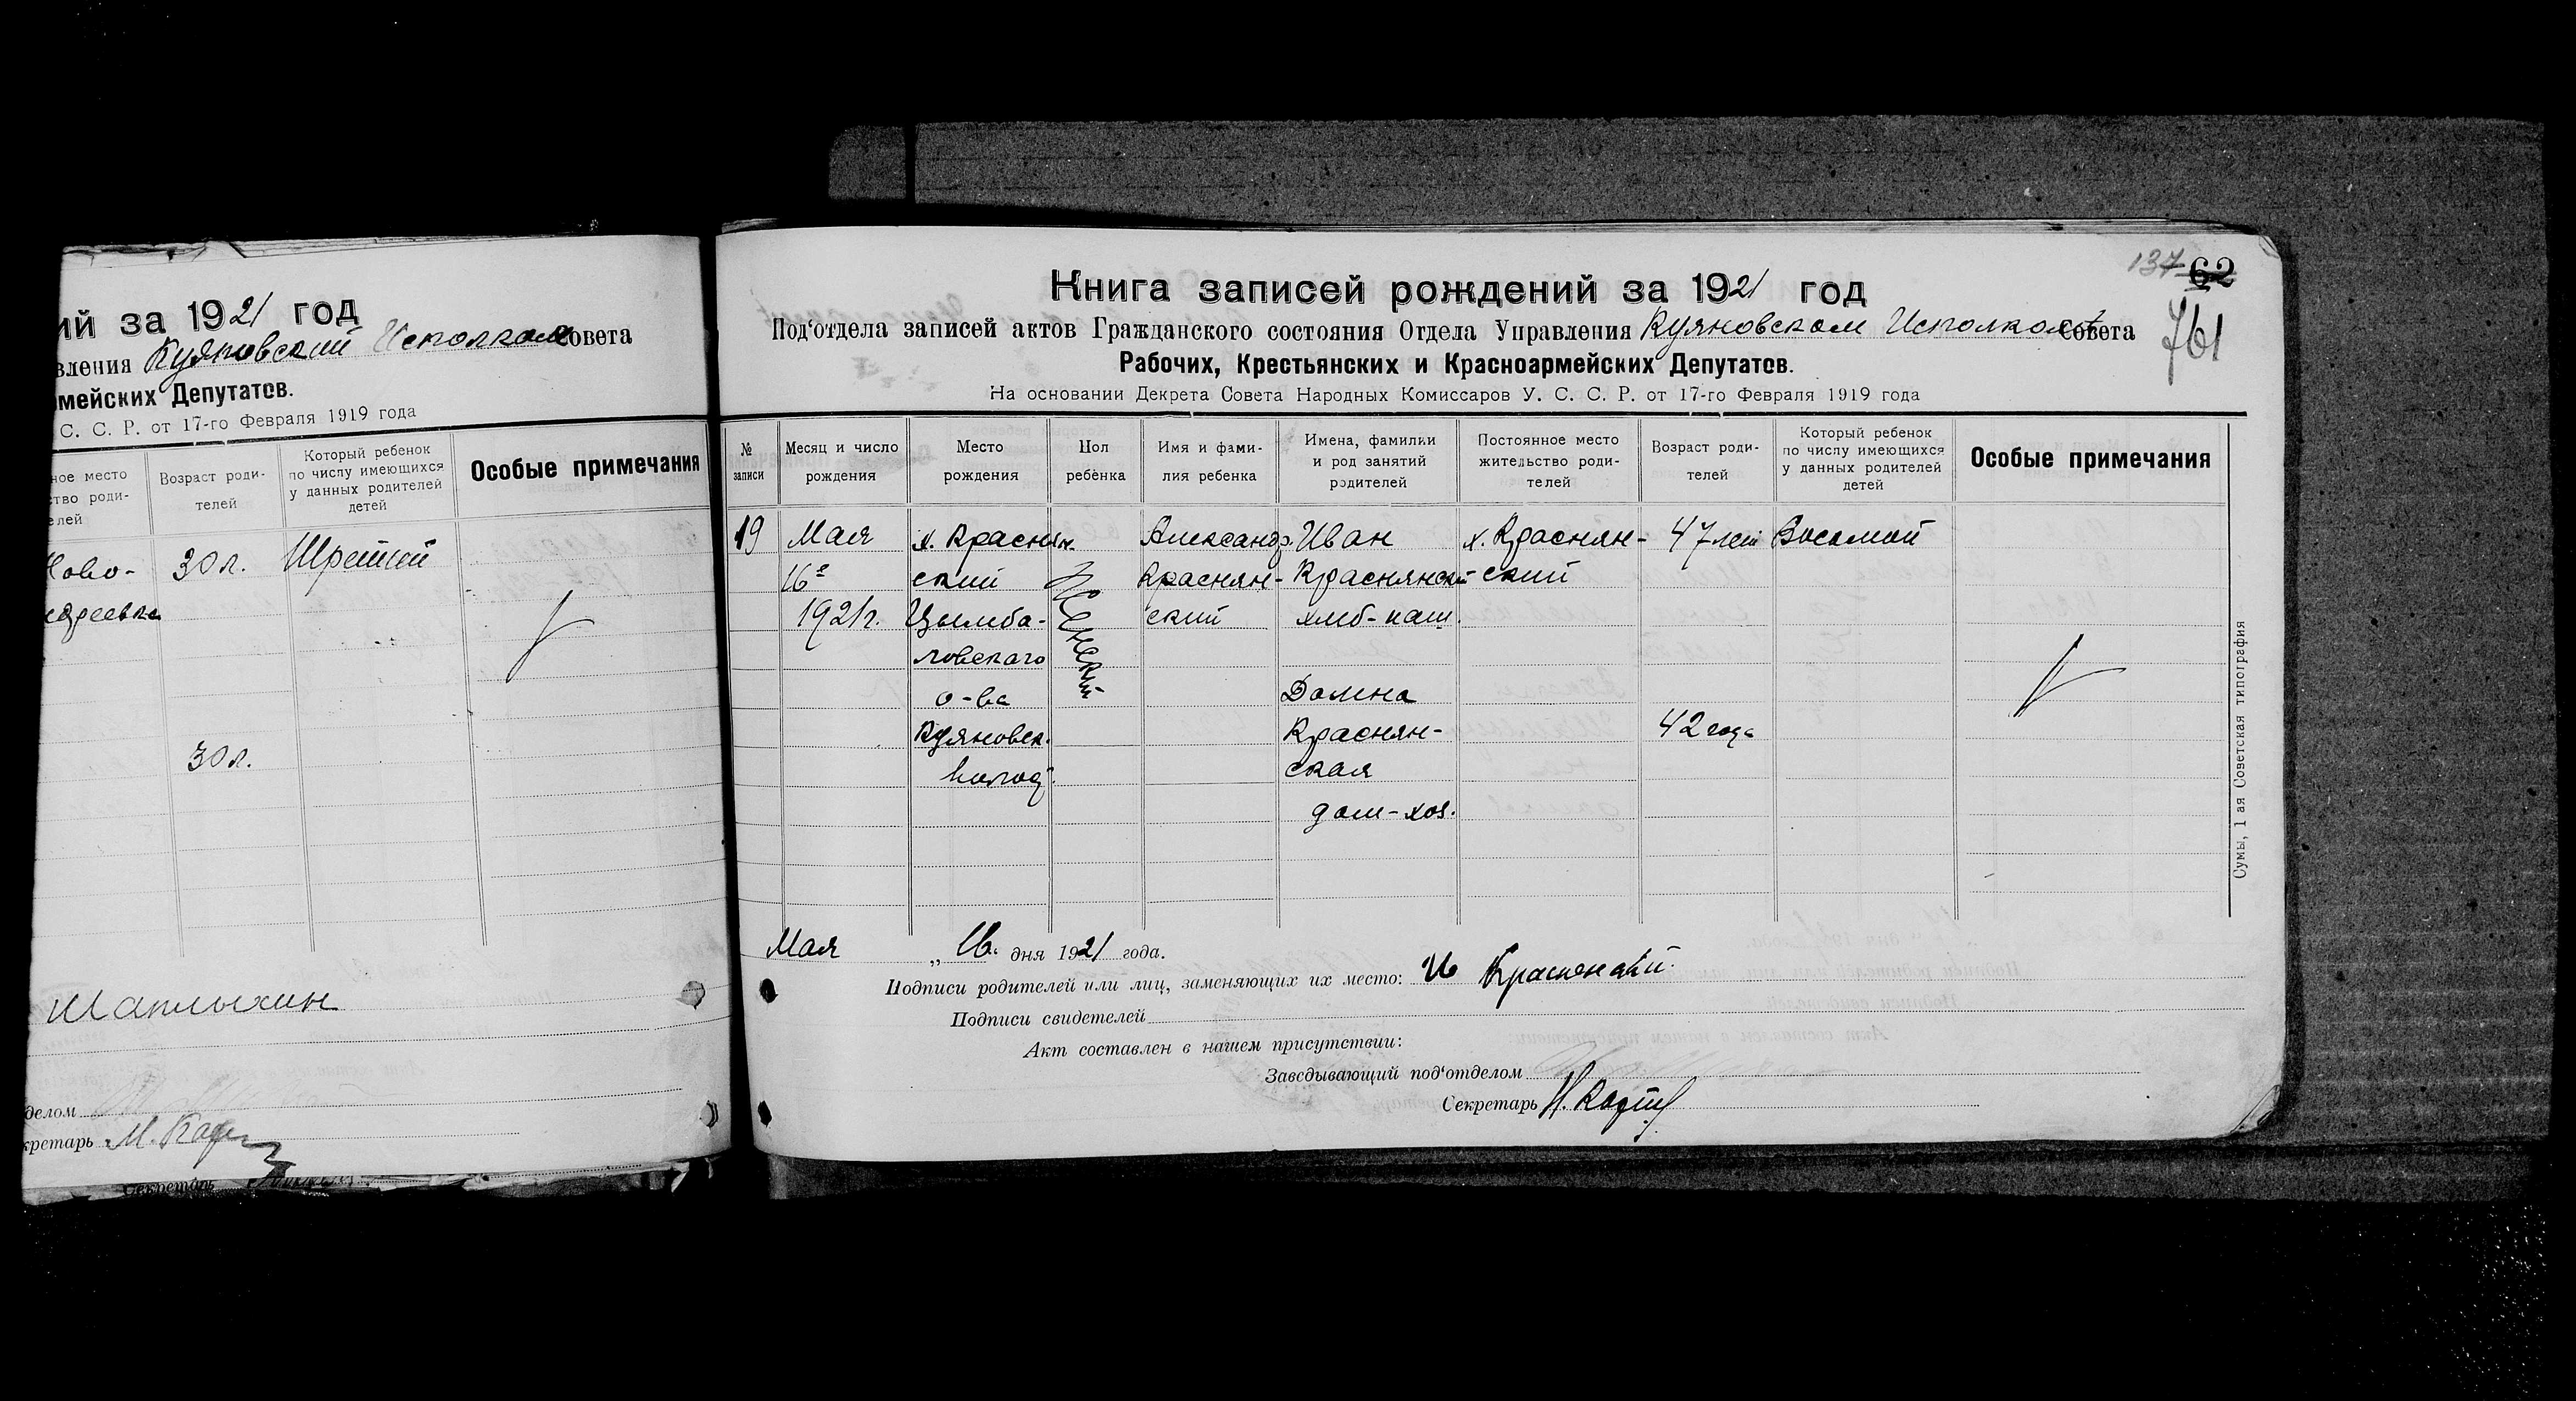 ий за 1921 год
вления Куяновский Исполком Совета
мейских Депутатов.
С. С. Р. от 17-го Февраля 1919 года
ное место
ство роди-
елей
Возраст роди-
телей
Который ребенок
по числу имеющихся
у данных родителей
детей
Особые примечания
30 л.
Третий
30 л.
Шаплыхин
делом
кретарь
Секретарь
Книга записей рождений за 1921 год
Под'отдела записей актов Гражданского состояния Отдела Управления Куяновском Исполком Совета
Рабочих, Крестьянских и Красноармейских Депутатов.
На основании Декрета Совета Народных Комиссаров У. С. С. Р. от 17-го Февраля 1919 года
137 62
761
№
записи
Месяц и число
рождения
Место
рождения
Пол
ребенка
Имя и фами-
лия ребенка
Имена, фамилии
и род занятий
родителей
Постоянное место
жительство роди-
телей
Возраст роди-
телей
Который ребенок
по числу имеющихся
у данных родителей
детей
Особые примечания
19
Мая
16го
1921 г.
х. Краснян-
ский
Цымба-
ловскаго
о-ва
Куяновск.
волод.
Женский
Александр.
Краснян-
ский
Иван
Краснянский
хлеб-паш.
Домна
Краснян-
ская
дом-хоз.
х. Краснян-
ский
47 лет
42 года
Восьмой
Мая „ 16 " дня 1921 года.
Подписи родителей или лиц, заменяющих их место: И Красненский
Подписи свидетелей
Акт составлен в нашем присутствии:
Заведывающий под'отделом
Секретарь
Сумы, 1-ая Советская типография